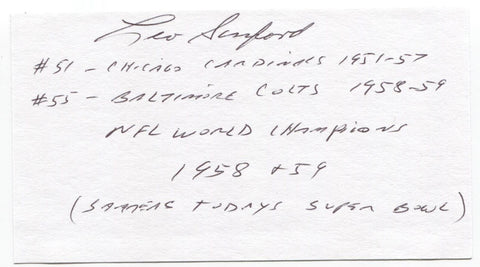 Leo Sanford
#51 - CHICAGO CARDINALS 1951-57
#55 - BALTIMORE COLTS 1958-59
NFL WORLD CHAMPIONS
1958 + 59
(SAME AS TODAYS SUPER BOWL)